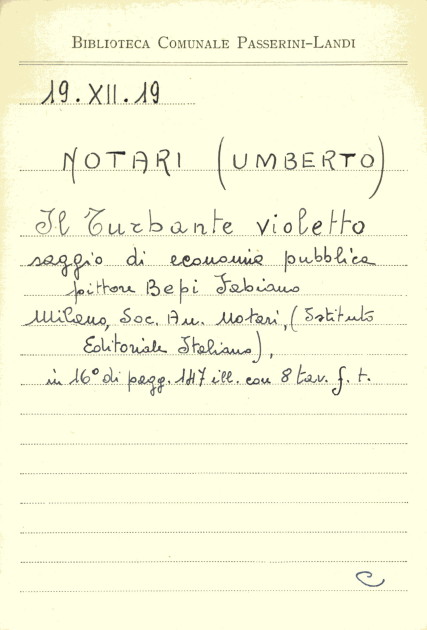 BIBLIOTECA COMUNALE PASSERINI-LANDI
19.XII.19
NOTARI (UMBERTO)
Il Turbante violetto
saggio di economia pubblica
pittore Bepi Fabiano
Milano, Soc. An. Notari, (Istituto
Editoriale Italiano),
in 16° di pagg. 147 ill. con 8 tav. f. t.
C